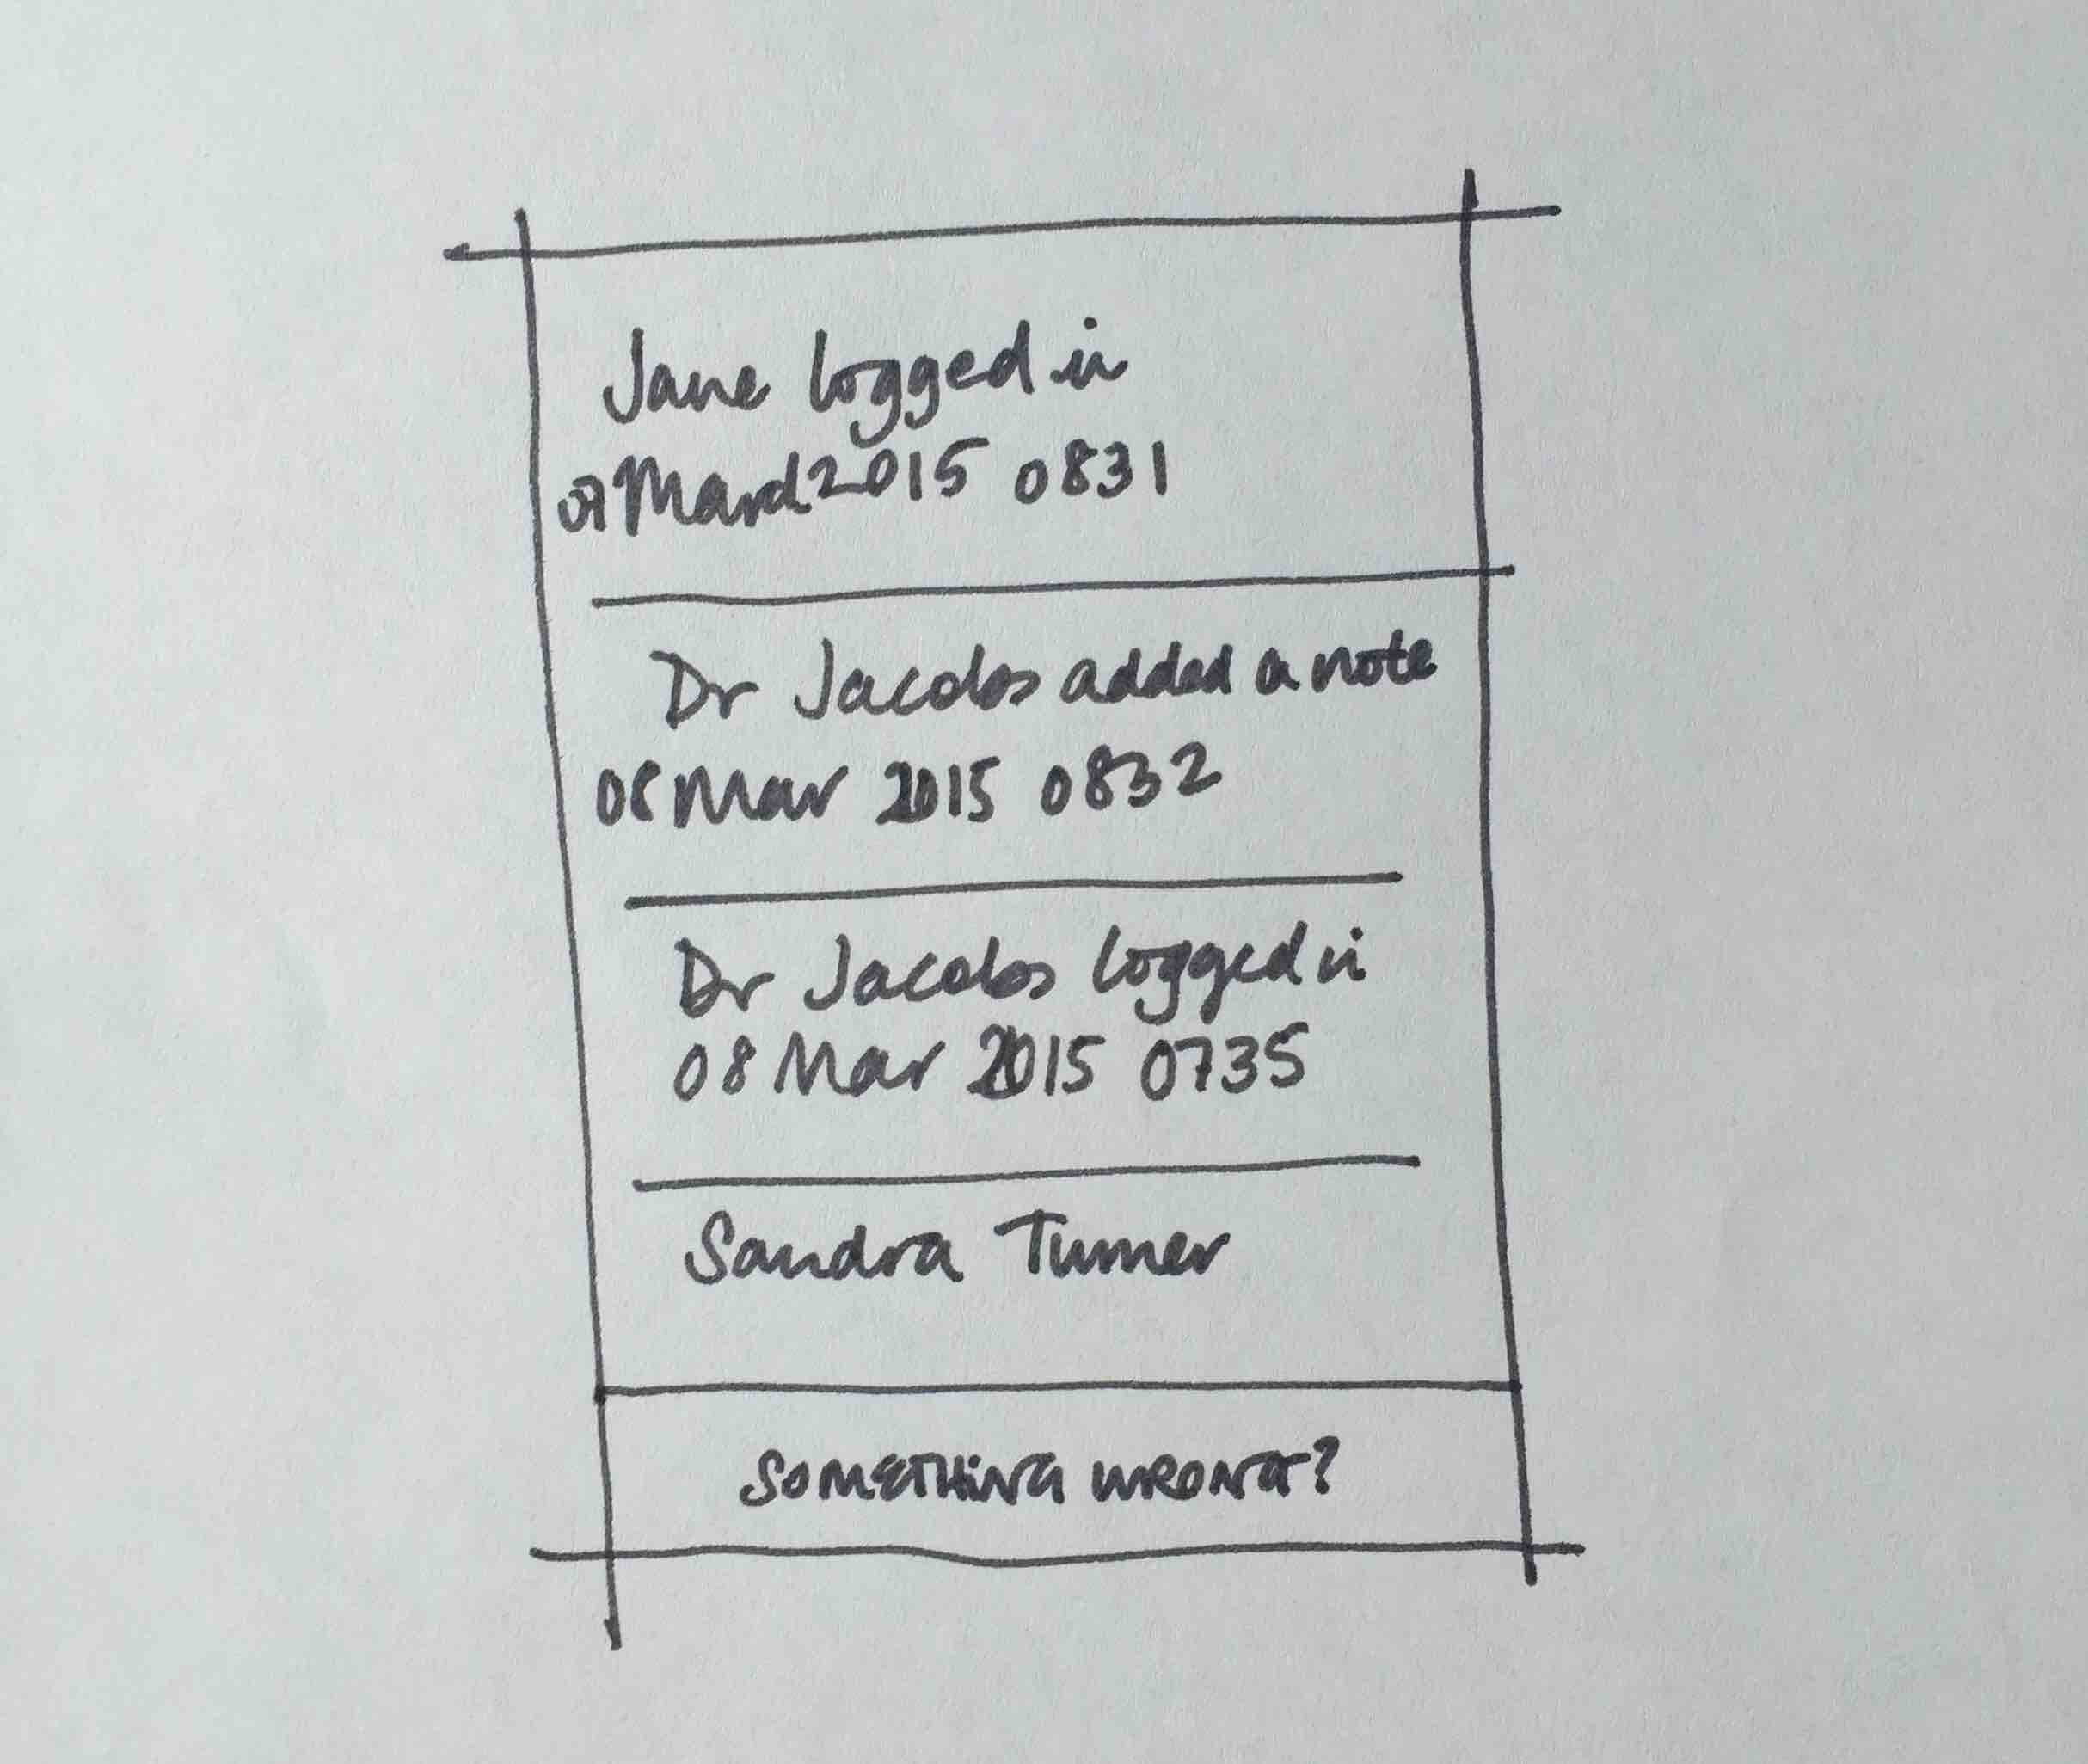 Jane logged in
March 2015 0831
Dr Jacobs added a note
08 Mar 2015 0832
Dr Jacobs logged in
08 Mar 2015 0735
Sandra Turner
SOMETHING WRONG?